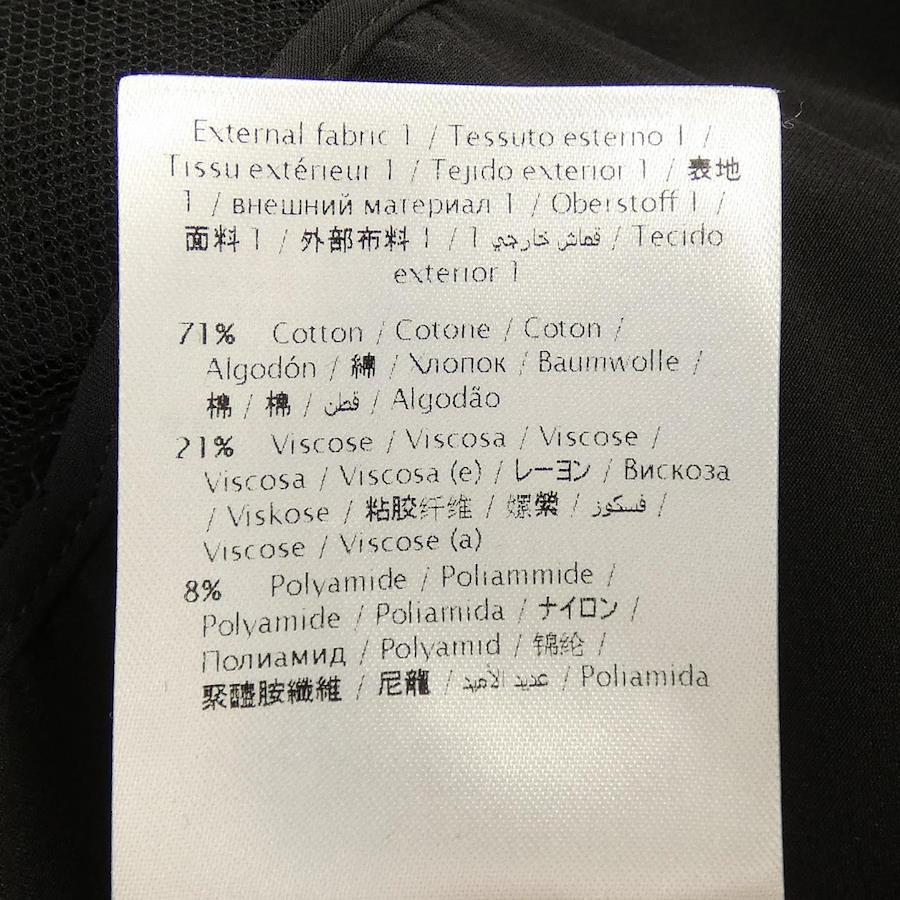 External fabric 1 / Tessuto esterno 1 /
Tissu extérieur 1 / Tejido exterior 1 / 表地
1 / внешний материал 1 / Oberstoff 1 /
面料 1 / 外部布料 1 / 1 قماش خارجي / Tecido
exterior 1
71% Cotton / Cotone / Coton /
Algodón / 綿 / Хлопок / Baumwolle /
棉 / 棉 / قطن / Algodão
21% Viscose / Viscosa / Viscose /
Viscosa / Viscosa (e) / レーヨン / Вискоза
/ Viskose / 粘胶纤维 / 嫘縈 / فسكوز /
Viscose / Viscose (a)
8% Polyamide / Poliammide /
Polyamide / Poliamida / ナイロン /
Полиамид / Polyamid / 锦纶 /
聚醯胺纖維 / 尼龍 / عديد الأميد / Poliamida